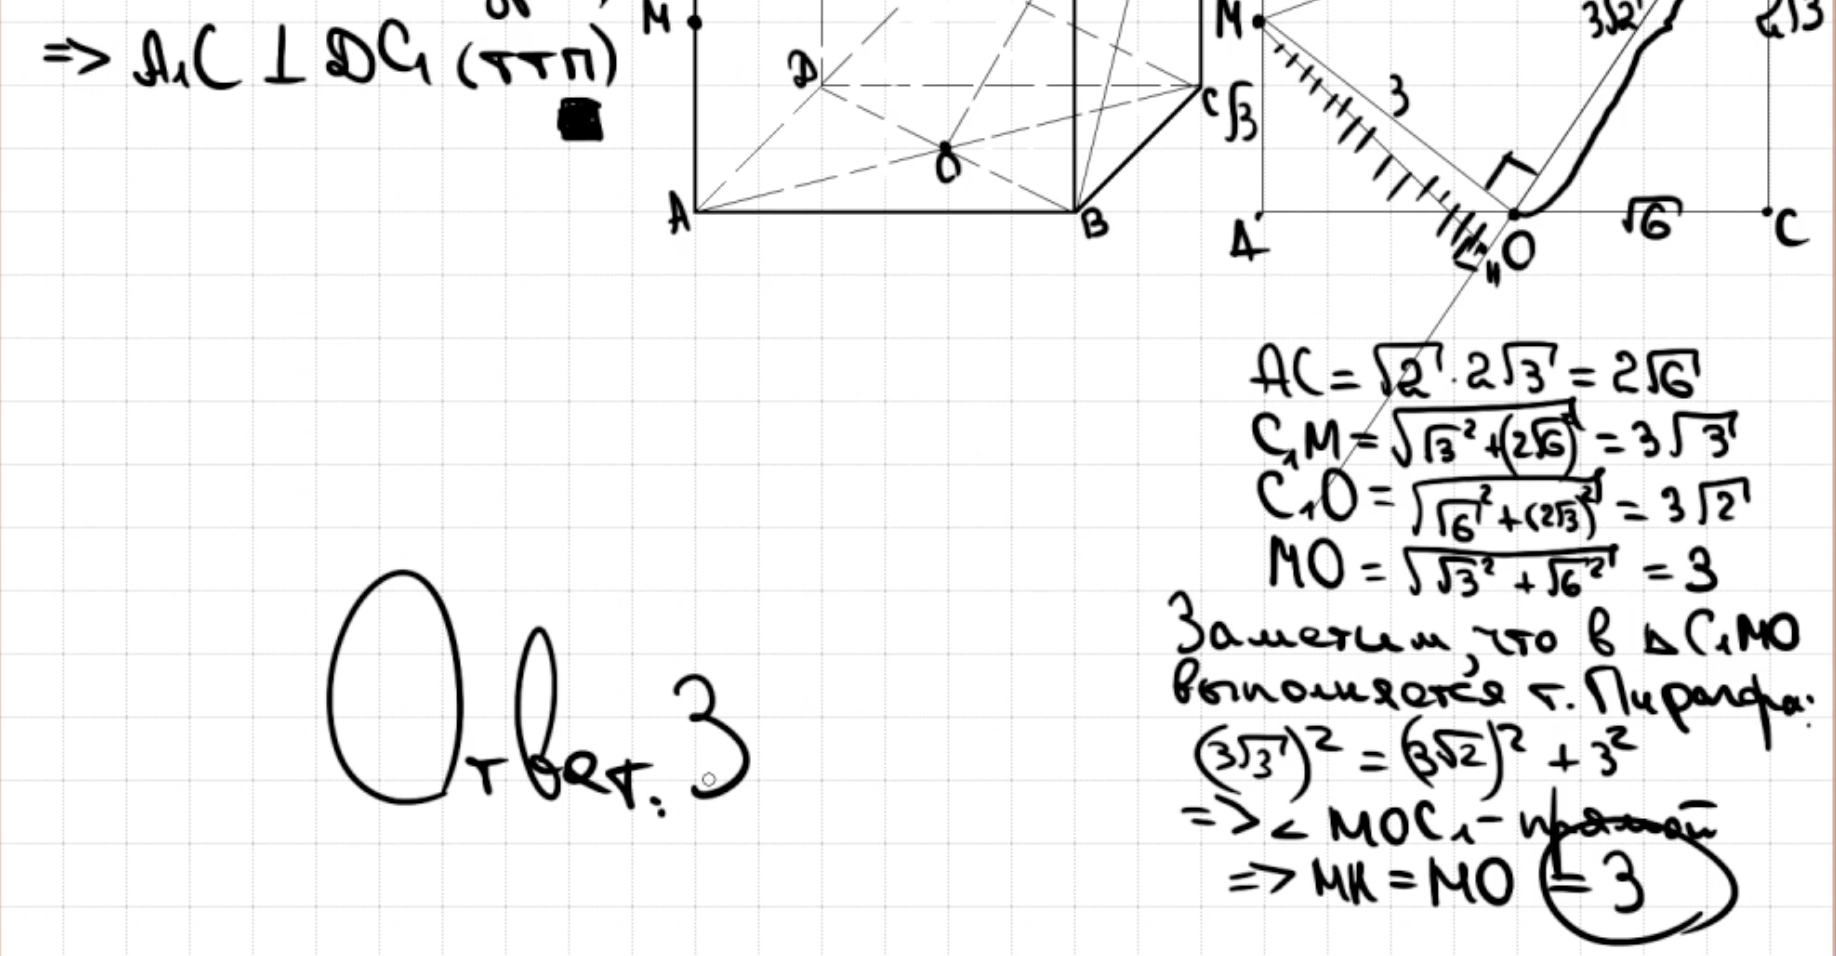 => A₁C ⊥ DC₁ (ттп)
M
D
C
O
A
B
M
3√2
2√3
3
√3
A
H
O
√6
C
AC = √2 · 2√3 = 2√6
C₁M = √(√3² + (2√6)²) = 3√3
C₁O = √(√6² + (2√3)²) = 3√2
MO = √(√3² + √6²) = 3
Заметим, что в △C₁MO
выполняется т. Пифагора:
(3√3)² = (3√2)² + 3²
=> ∠ MOC₁ - прямой
=> MH = MO = 3
Ответ: 3